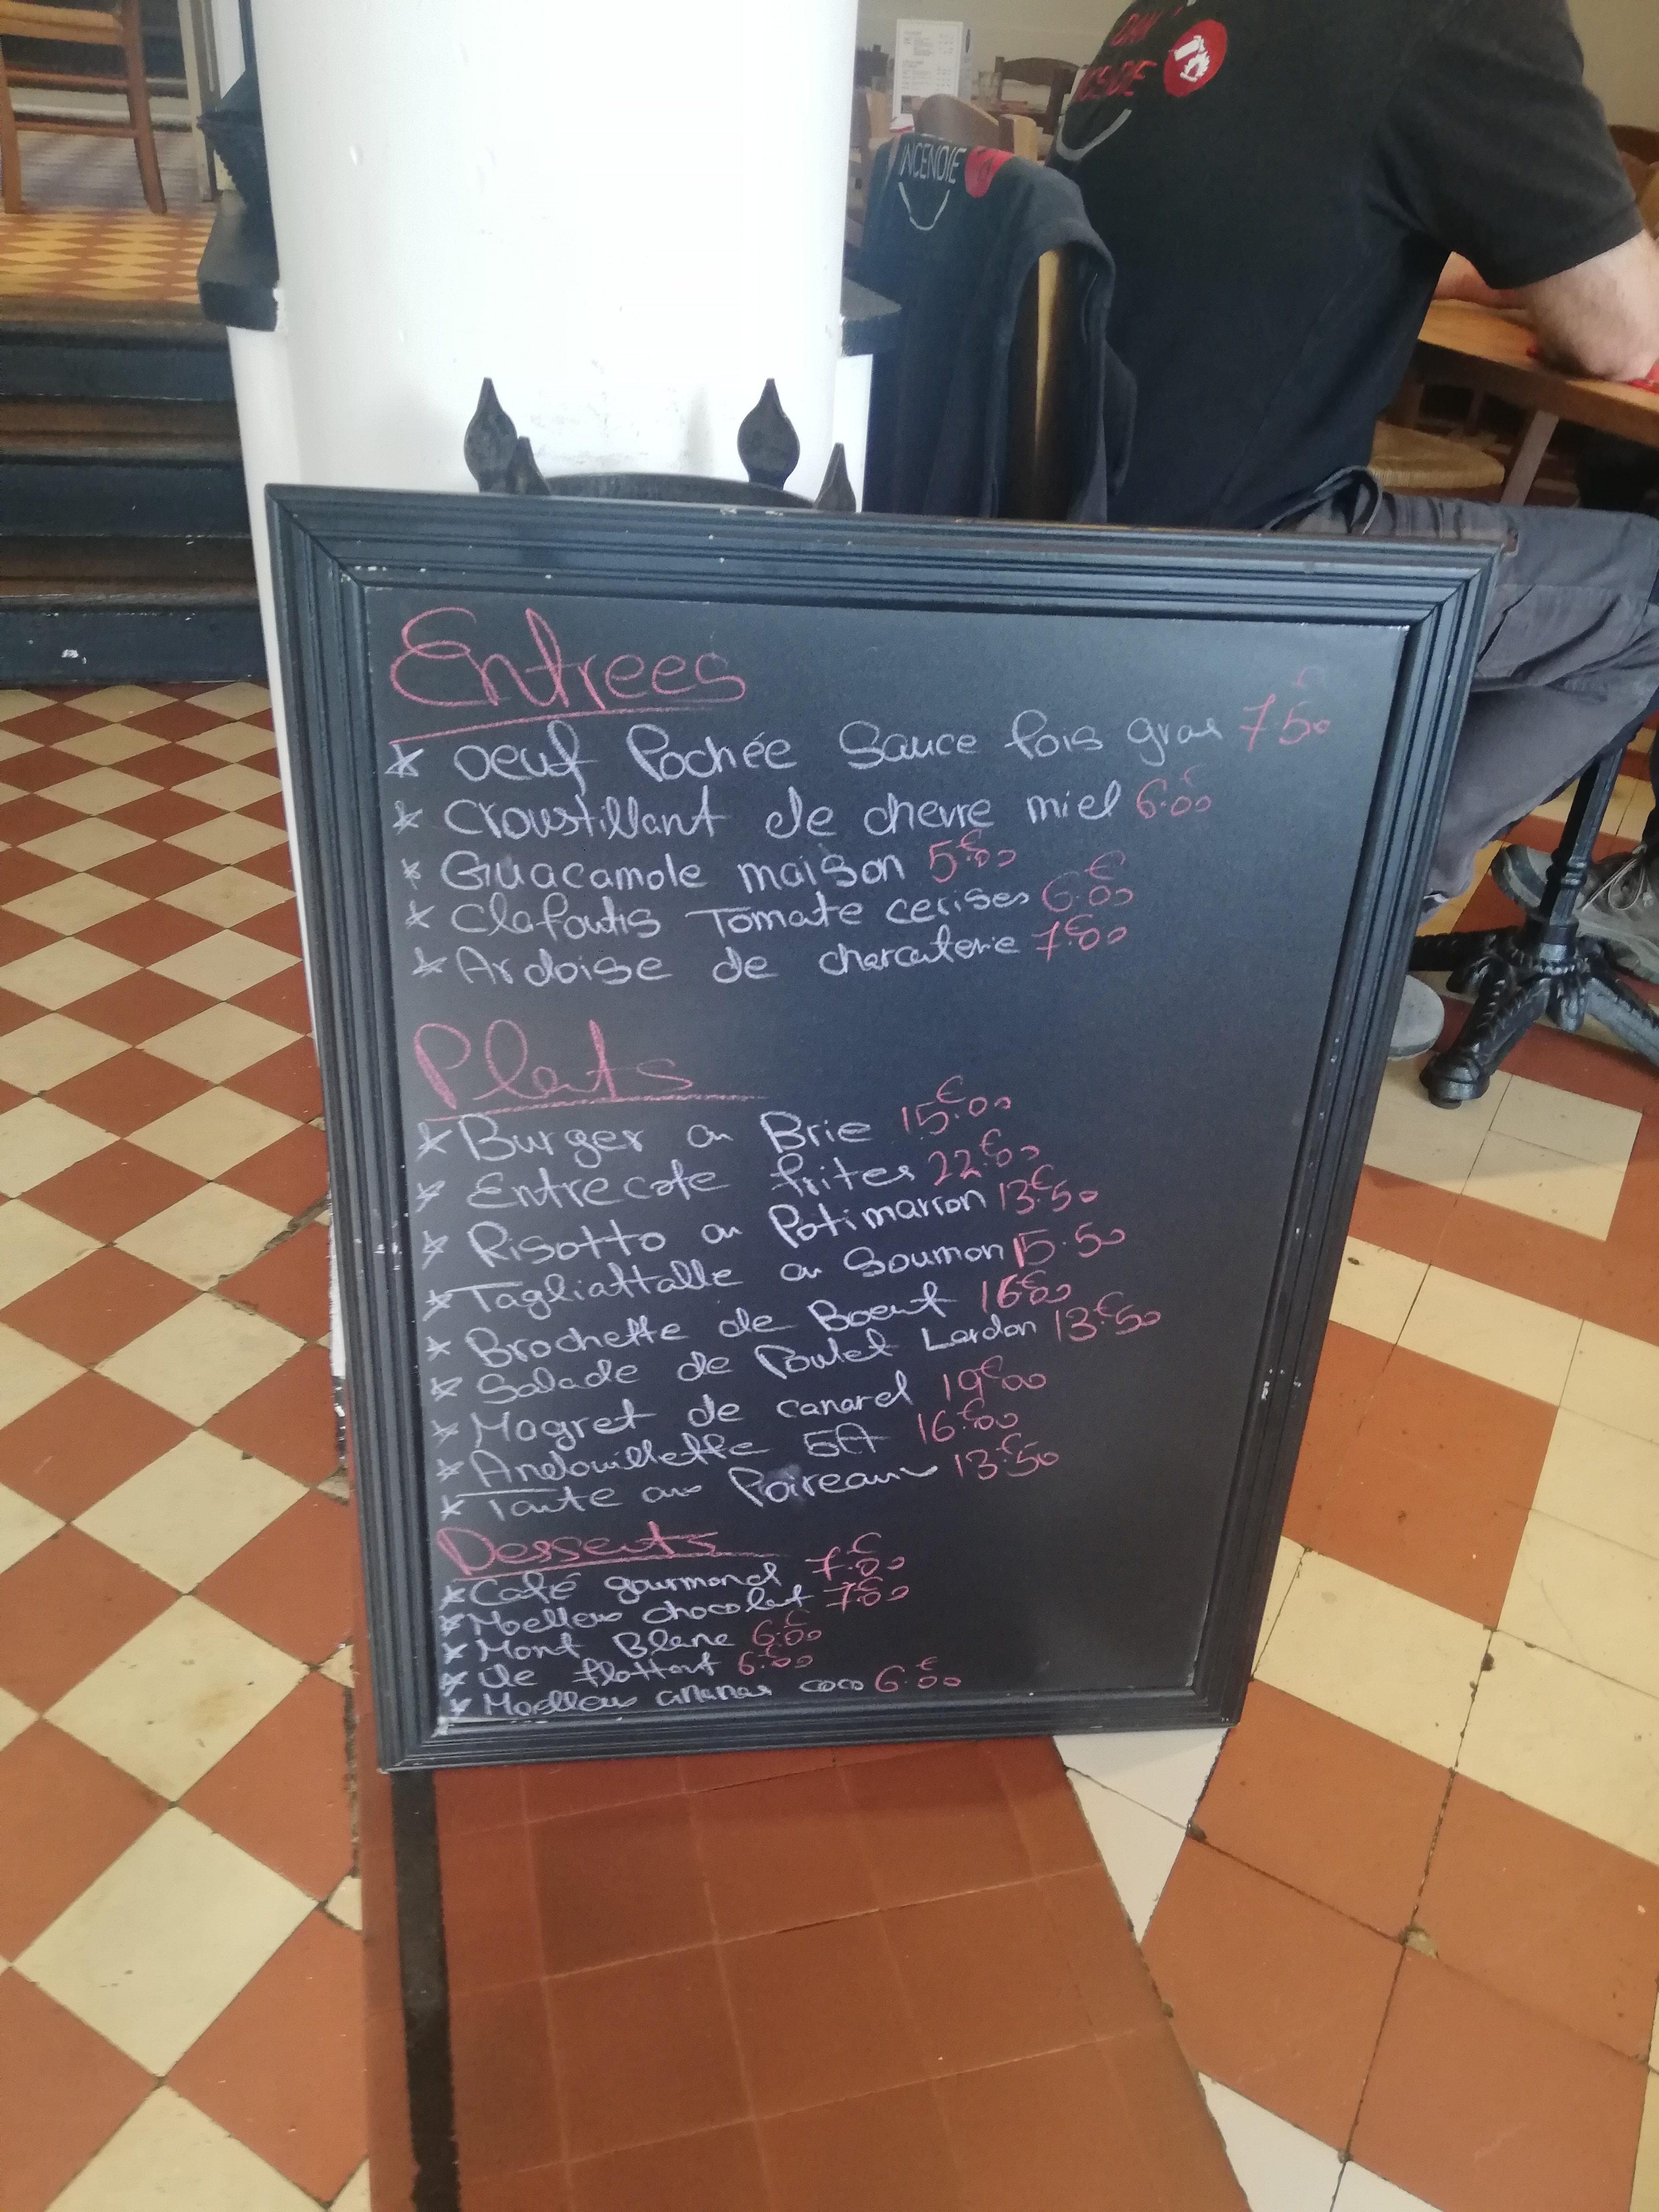 DAN
INCENDIE
Entrees
* Oeuf Pochée Sauce fois gras 7€50
* Croustillant de chevre miel 6€00
* Guacamole maison 5€00
* Clafoutis Tomate cerises 6€00
* Ardoise de charcuterie 7€00
Plats
* Burger au Brie 15€00
* Entrecote frites 22€00
* Risotto au Potimarron 13€50
* Tagliattalle au Soumon 15.50
* Brochette de Boeuf 16€00
* Salade de Poulet Lardon 13€50
* Magret de canard 19€00
* Andouillette 5A 16€00
* Tarte aux Poireaux 13€50
Desserts
* Café gourmand 7€00
* Moelleux chocolat 7€00
* Mont Blanc 6€00
* ile flottant 6€00
* Moelleux ananas coco 6€00